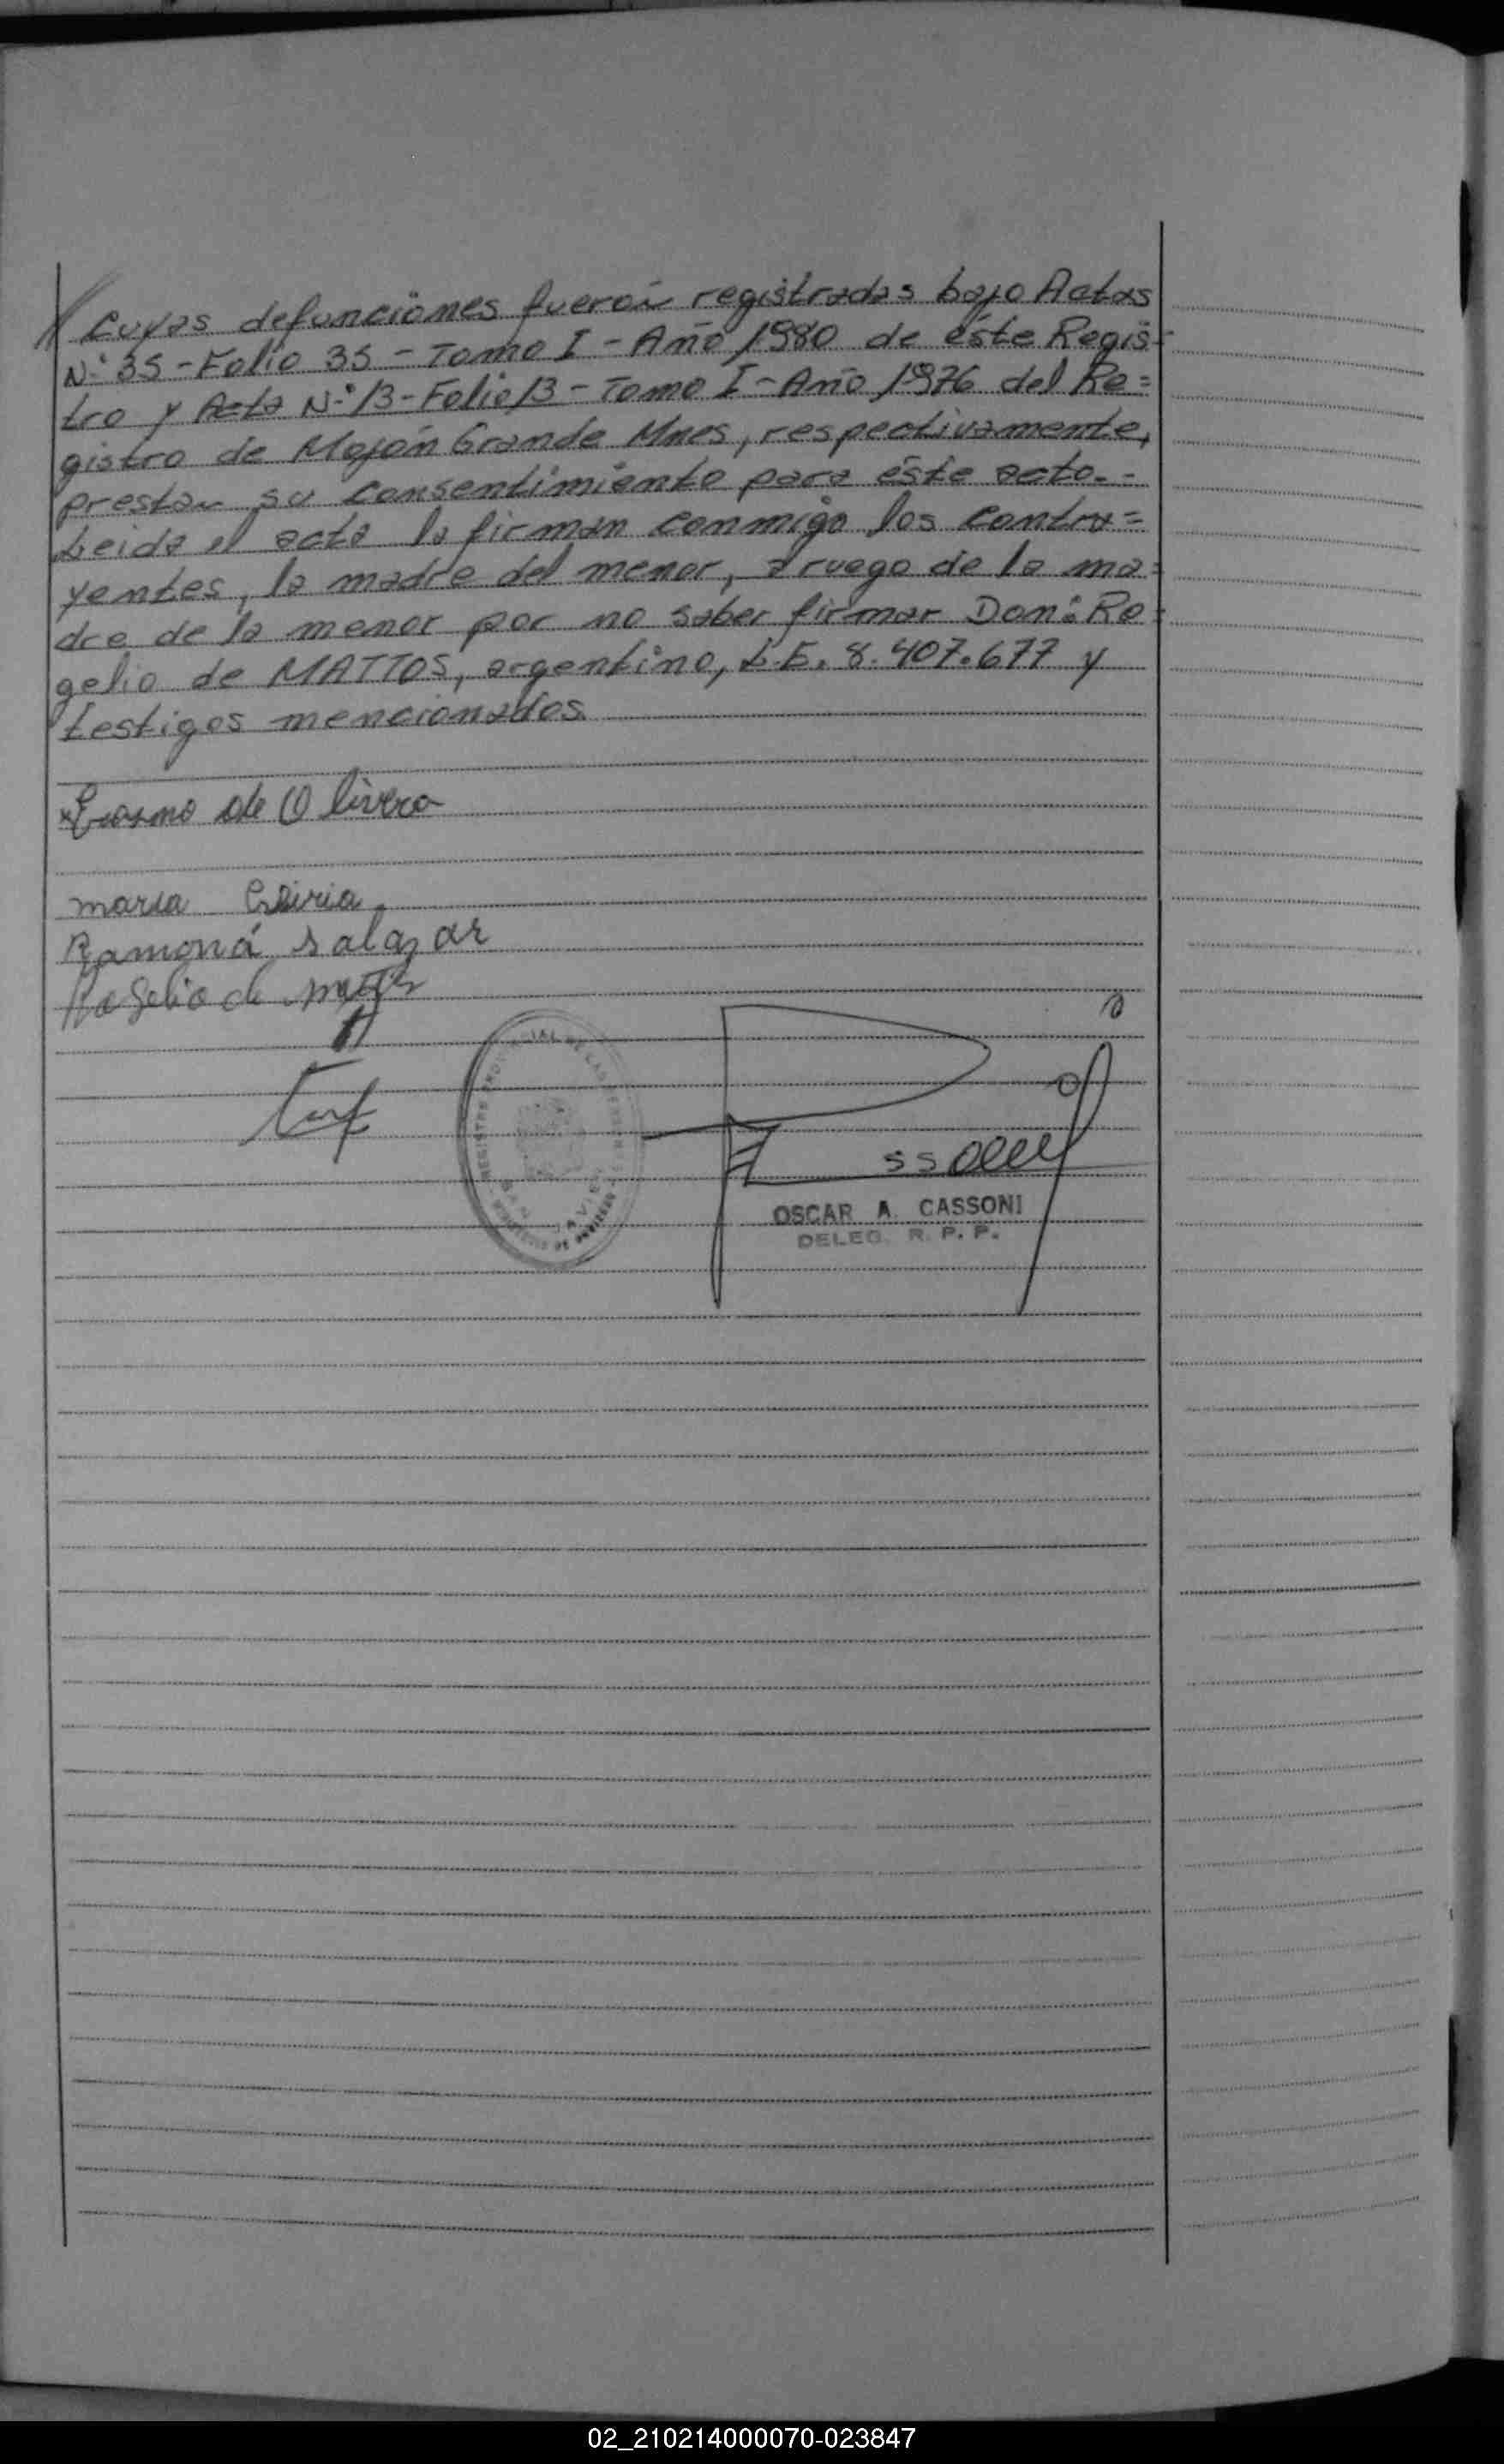 // Cuyas defunciones fueron registradas bajo Actas
N° 35 - Folio 35 - Tomo I - Año 1980 de éste Regis=
tro y Acta N° 13 - Folio 13 - Tomo I - Año 1976 del Re=
gistro de Mojón Grande Mnes, respectivamente,
prestan su consentimiento para éste acto.-
Leida el acta la firman conmigo los contra=
yentes, la madre del menor, a ruego de la ma=
dre de la menor por no saber firmar Don: Ro=
gelio de MATTOS, argentino, L.E. 8.407.677 y
testigos mencionados
Erasmo de Olivera
maria
Ramona salazar
Rogelio de
REGISTRO PROVINCIAL DE LAS PERSONAS
SAN JAVIER
OSCAR A. CASSONI
DELEG. R. P. P.
02_210214000070-023847